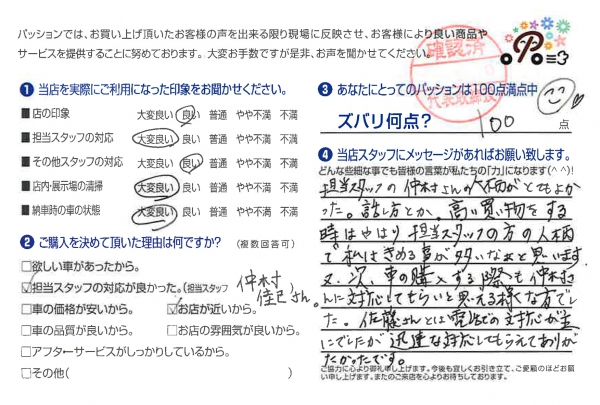 パッションでは、お買い上げ頂いたお客様の声を出来る限り現場に反映させ、お客様により良い商品や
サービスを提供することに努めております。大変お手数ですが是非、お声を聞かせてください。
確認済
代表取締役
❶ 当店を実際にご利用になった印象をお聞かせください。
■店の印象 大変良い 良い 普通 やや不満 不満
■担当スタッフの対応 大変良い 良い 普通 やや不満 不満
■その他スタッフの対応 大変良い 良い 普通 やや不満 不満
■店内・展示場の清掃 大変良い 良い 普通 やや不満 不満
■納車時の車の状態 大変良い 良い 普通 やや不満 不満
❷ ご購入を決めて頂いた理由は何ですか? (複数回答可)
□欲しい車があったから。
☑担当スタッフの対応が良かった。(担当スタッフ 仲村佳己さん。
□車の価格が安いから。 ☑お店が近いから。
□車の品質が良いから。 □お店の雰囲気が良いから。
□アフターサービスがしっかりしているから。
□その他( )
❸ あなたにとってのパッションは100点満点中
ズバリ何点? 100 点
❹ 当店スタッフにメッセージがあればお願い致します。
どんな些細な事でも皆様の言葉が私たちの「力」になります(^^)!
担当スタッフの仲村さんの人柄がとてもよか
った。話し方とか。高い買い物をする
時はやはり担当スタッフの方の人柄
で私はきめる事が多いなぁと思います。
又、次、車の購入する際も仲村さ
んに対応してもらいと思える様な方でし
た。佐藤さんとは電話での対応が主
にでしたが迅速な対応してもらえてありが
たかったです。
ご協力に心より御礼申し上げます。今後も宜しくお引き立て、ご愛顧のほどお願
い申し上げます。またのご来店を心よりお待ちしております。